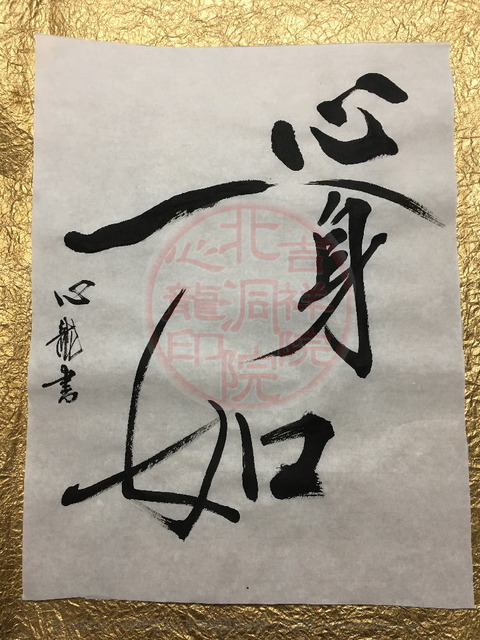 心身
一如
心龍書
吉祥院
北洞院
心龍印